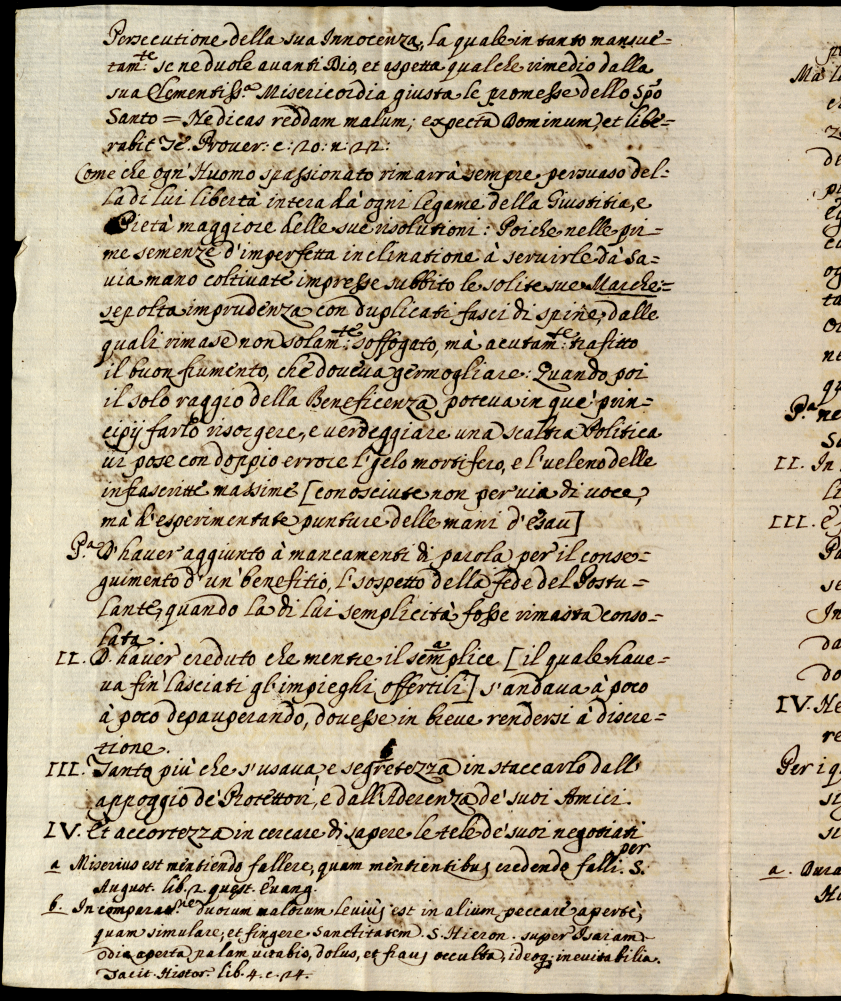 Persecutione della sua Innocenza, la quale in tanto mansue=
tam:te se ne duole avanti Dio, et aspetta qualche rimedio dalla
sua Clementiss:a Misericordia giusta le promesse dello Spō
Santo = Ne dicas reddam malum; expecta Dominum, et libe=
rabit Te. Prover: c: 20: n: 22:
Come che ogn' Huomo spassionato rimarrà sempre persuaso del=
la di lui libertà intera dà ogni legame della Giustitia, e
Pietà maggiore delle sue risolutioni: Poiche nelle pri=
me semenze d'imperfetta inclinatione à servirle dà Sa=
via mano coltivate impresse subbito le solite sue Marche=
sepolta imprudenza con duplicati fasci di spine, dalle
quali rimase non solam:te soffogato, mà acutam:te trafitto
il buon frumento, che doveva germogliare: Quando poi
il solo raggio della Beneficenza poteva in que' prin=
cipij farlo risorgere, e verdeggiare una scaltra Politica
vi pose con doppio errore l'gelo mortifero, e l'veleno delle
infrascritte massime [conosciute non per via di voce,
mà d'esperimentate punture delle mani d'Esau]
P.a D'haver aggiunto à mancamenti di parola per il conse=
guimento d'un' benefitio, l'sospetto della fede del Postu=
lante, quando la di lui semplicità fosse rimasta conso=
lata.
II. D'haver creduto che mentre il semplice a [il quale have=
va fin' lasciati gl'impieghi offertili] s'andava à poco
à poco depauperando, dovesse in breve rendersi à discre=
tione.
III. Tanto più che s'usava, e segretezza b in staccarlo dall'
appoggio de' Protettori, e dall'Aderenza de' suoi Amici.
IV. Et accortezza in cercare di sapere le tele de' suoi negotiati
per
a Miserius est mentiendo fallere, quam mentientibus credendo falli. S.
August. lib. 2. quest. Evang.
b. In comparat.ne duorum malorum levius est in alium peccare aperte,
quam simulare, et fingere Sanctitatem. S. Hieron. super Isaiam
Odia aperta palam vitabis, dolus, et fraus occulta, ideoq; inevitabilia.
Tacit. Histor. lib. 4. c. 24.
II. In
III.
IV. Ne
Per i q
a.